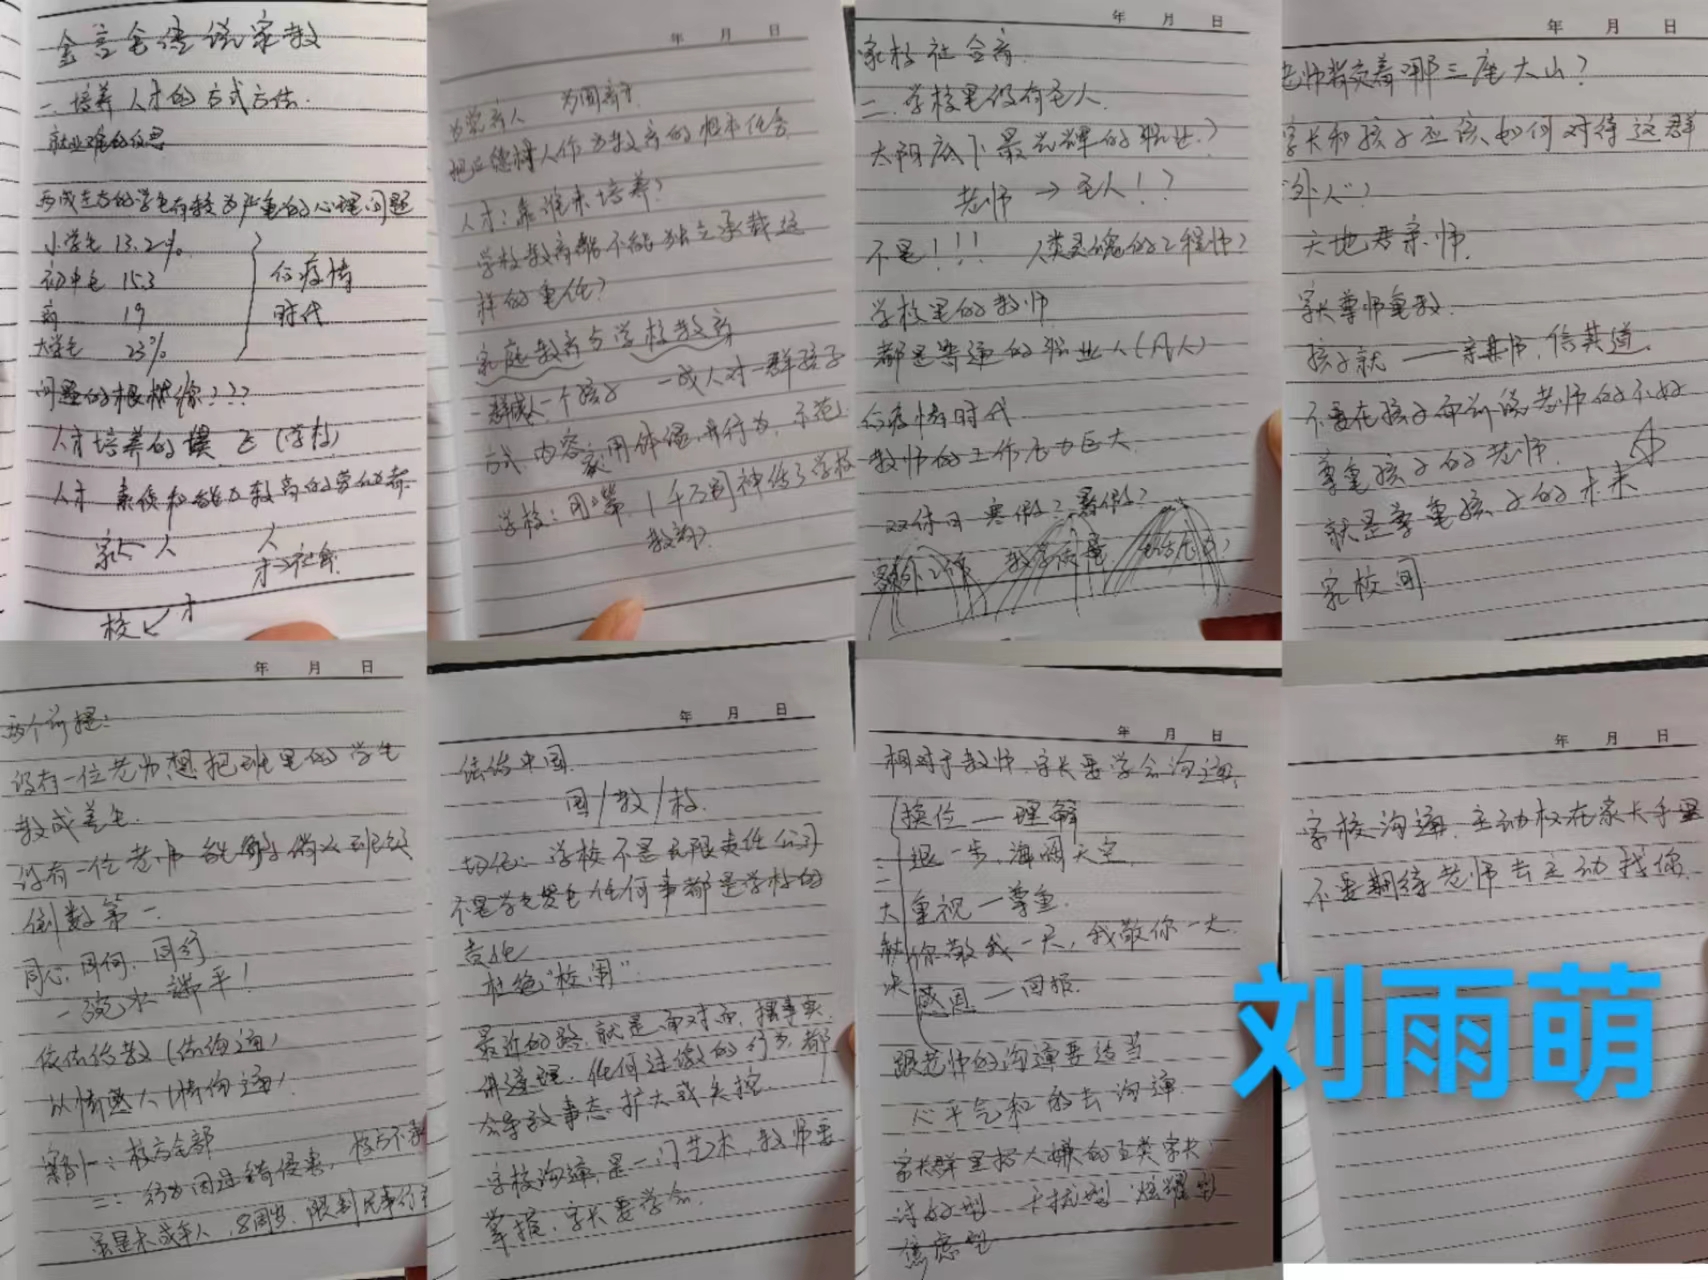 金言金语说家教
一.培养人才的方式方法.
就业难的反思
两成左右的学生有较为严重的心理问题
小学生 13.2%
初中生 15.3
高 19
大学生 23%
后疫情
时代
问题的根 ???
人才培养的 (学校)
人才 素质和能力较高的劳动者.
家 人 人
才→社会
校 才
年 月 日
为党育人 为国育才
把立德树人作为教育的根本任务
人才:靠谁来培养?
学校教育都不能独立承载这
样的重任?
家庭教育与学校教育
一群成人一个孩子 一成人对一群孩子
方式 内容 家:用体温,用行为,示范
学校:
教育?
年 月 日
家校社合育.
二.学校里没有圣人.
太阳底下最光辉的职业?
老师→圣人!?
不是!!! 人类灵魂的工程师?
学校里的教师
都是普通的职业人(凡人)
后疫情时代
教师的工作压力巨大.
双休日 寒假?暑假?
额外工作 教学质量
年 月 日
老师背负着哪三座大山?
家长和孩子应该如何对待这群
“外人”?
天地君亲师.
家长尊师重教.
孩子就——亲其师,信其道.
不要在孩子面前说老师的不好
尊重孩子的老师.
就是尊重孩子的未来
家校同
年 月 日
两个前提:
没有一位老师想把班里的学生
教成差生.
没有一位老师 班级
倒数第一.
同心.同向.同行
一碗水端平!
依法治教(依法沟通)
以情感人(情沟通)
案例一:校方全部
二:行为因过错侵害,校方不承
虽是未成年人,8周岁.限制民事行
年 月 日
法治中国
国/教/校.
切记:学校不是无限责任公司
不是学生发生任何事都是学校的
责任
杜绝“校闹”.
最近的路,就是面对面,摆事实
讲道理.任何过激的行为,都
会导致事态扩大或失控.
家校沟通,是一门艺术,教师要
掌握,家长要学会.
年 月 日
相对于教师,家长要学会沟通.
换位—理解
三 退一步,海阔天空.
大 重视—尊重.
秘 你敬我一尺,我敬你一丈.
诀 感恩—回报.
跟老师的沟通要适当
心平气和的去沟通.
家长群里招人嫌的五类家长
讨好型 干扰型 炫耀型
焦虑型
年 月 日
家校沟通,主动权在家长手里
不要期待老师去主动找你.
刘雨萌